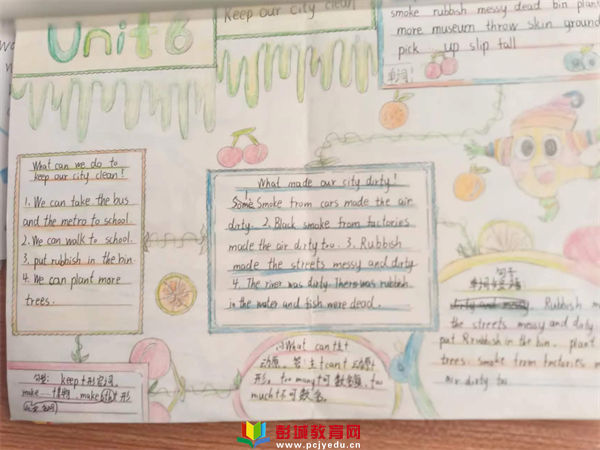 Unit 6
Keep our city clean
smoke rubbish messy dead bin plant
more museum throw skin ground
pick up slip fall
单词
What can we do to
keep our city clean!
1. We can take the bus
and the metro to school.
2. We can walk to school.
3. put rubbish in the bin
4. We can plant more
trees.
What made our city dirty!
Smoke from cars made the air
dirty. 2. Black smoke from factories
made the air dirty too. 3. Rubbish
made the streets messy and dirty
4. The river was dirty There was rubbish
in the water and fish were dead.
句子
dirty and messy. Rubbish m
the streets messy and dirty
put Rrubbish in the bin. plant
trees. smoke from factories m
air dirty too
What can
too many可数名
much+不可数名。
keep+形容词
make
彭城教育网
www.pcjyedu.cn